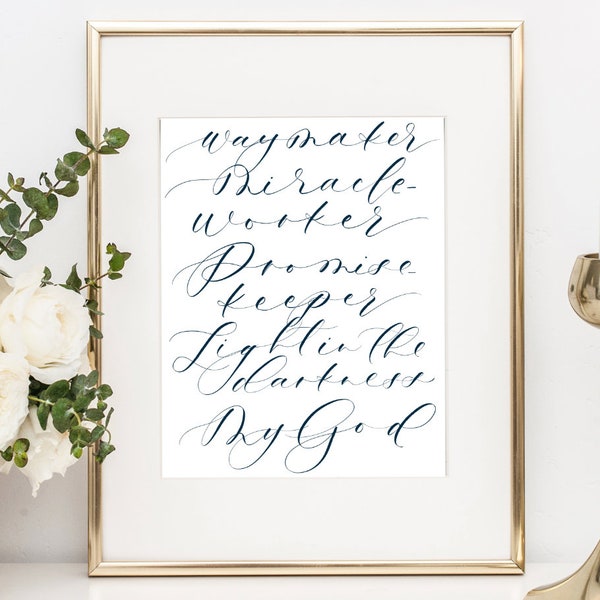 waymaker
Miracle-
worker
Promise-
keeper
Light in the
darkness
My God